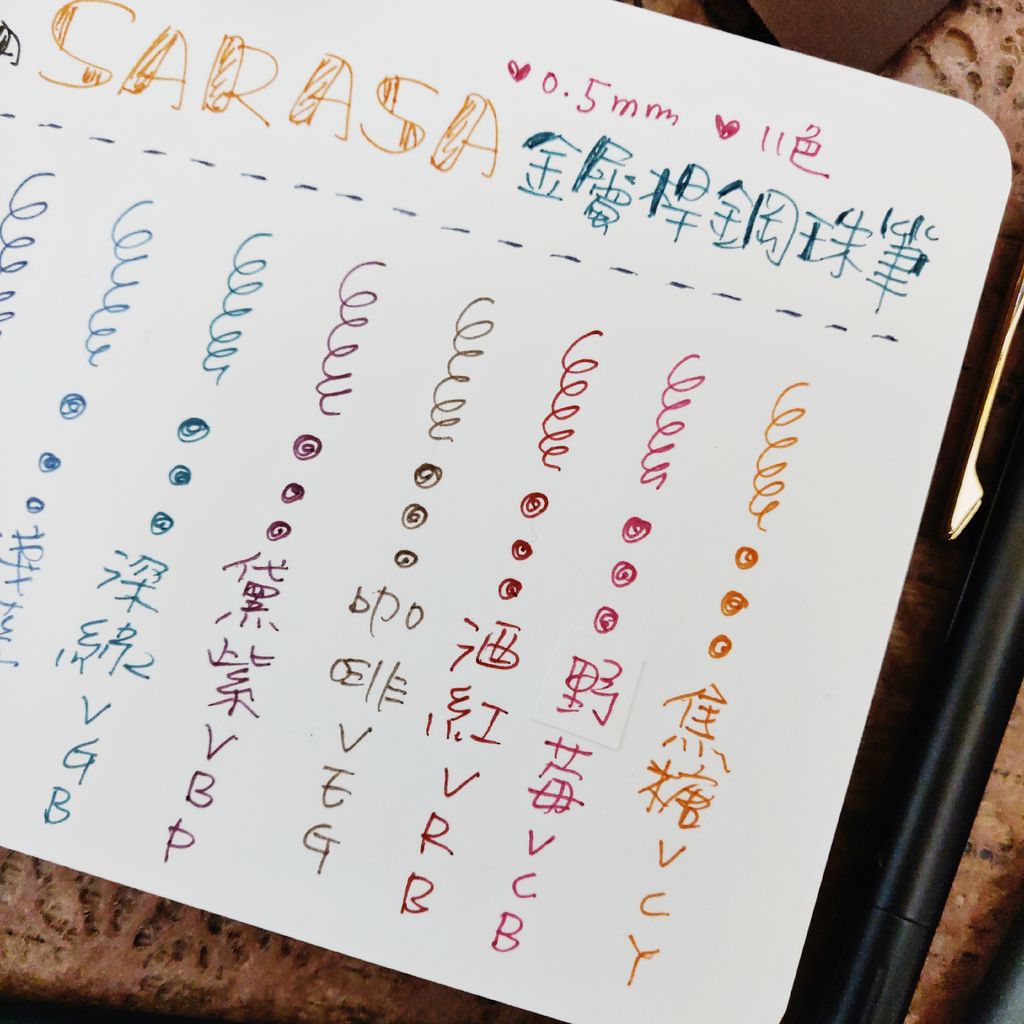 SARASA
♥ 0.5mm ♥ 11色
金屬桿鋼珠筆
深綠VGB
黛紫VBP
咖啡VEG
酒紅VRB
野莓VCB
焦糖VCY